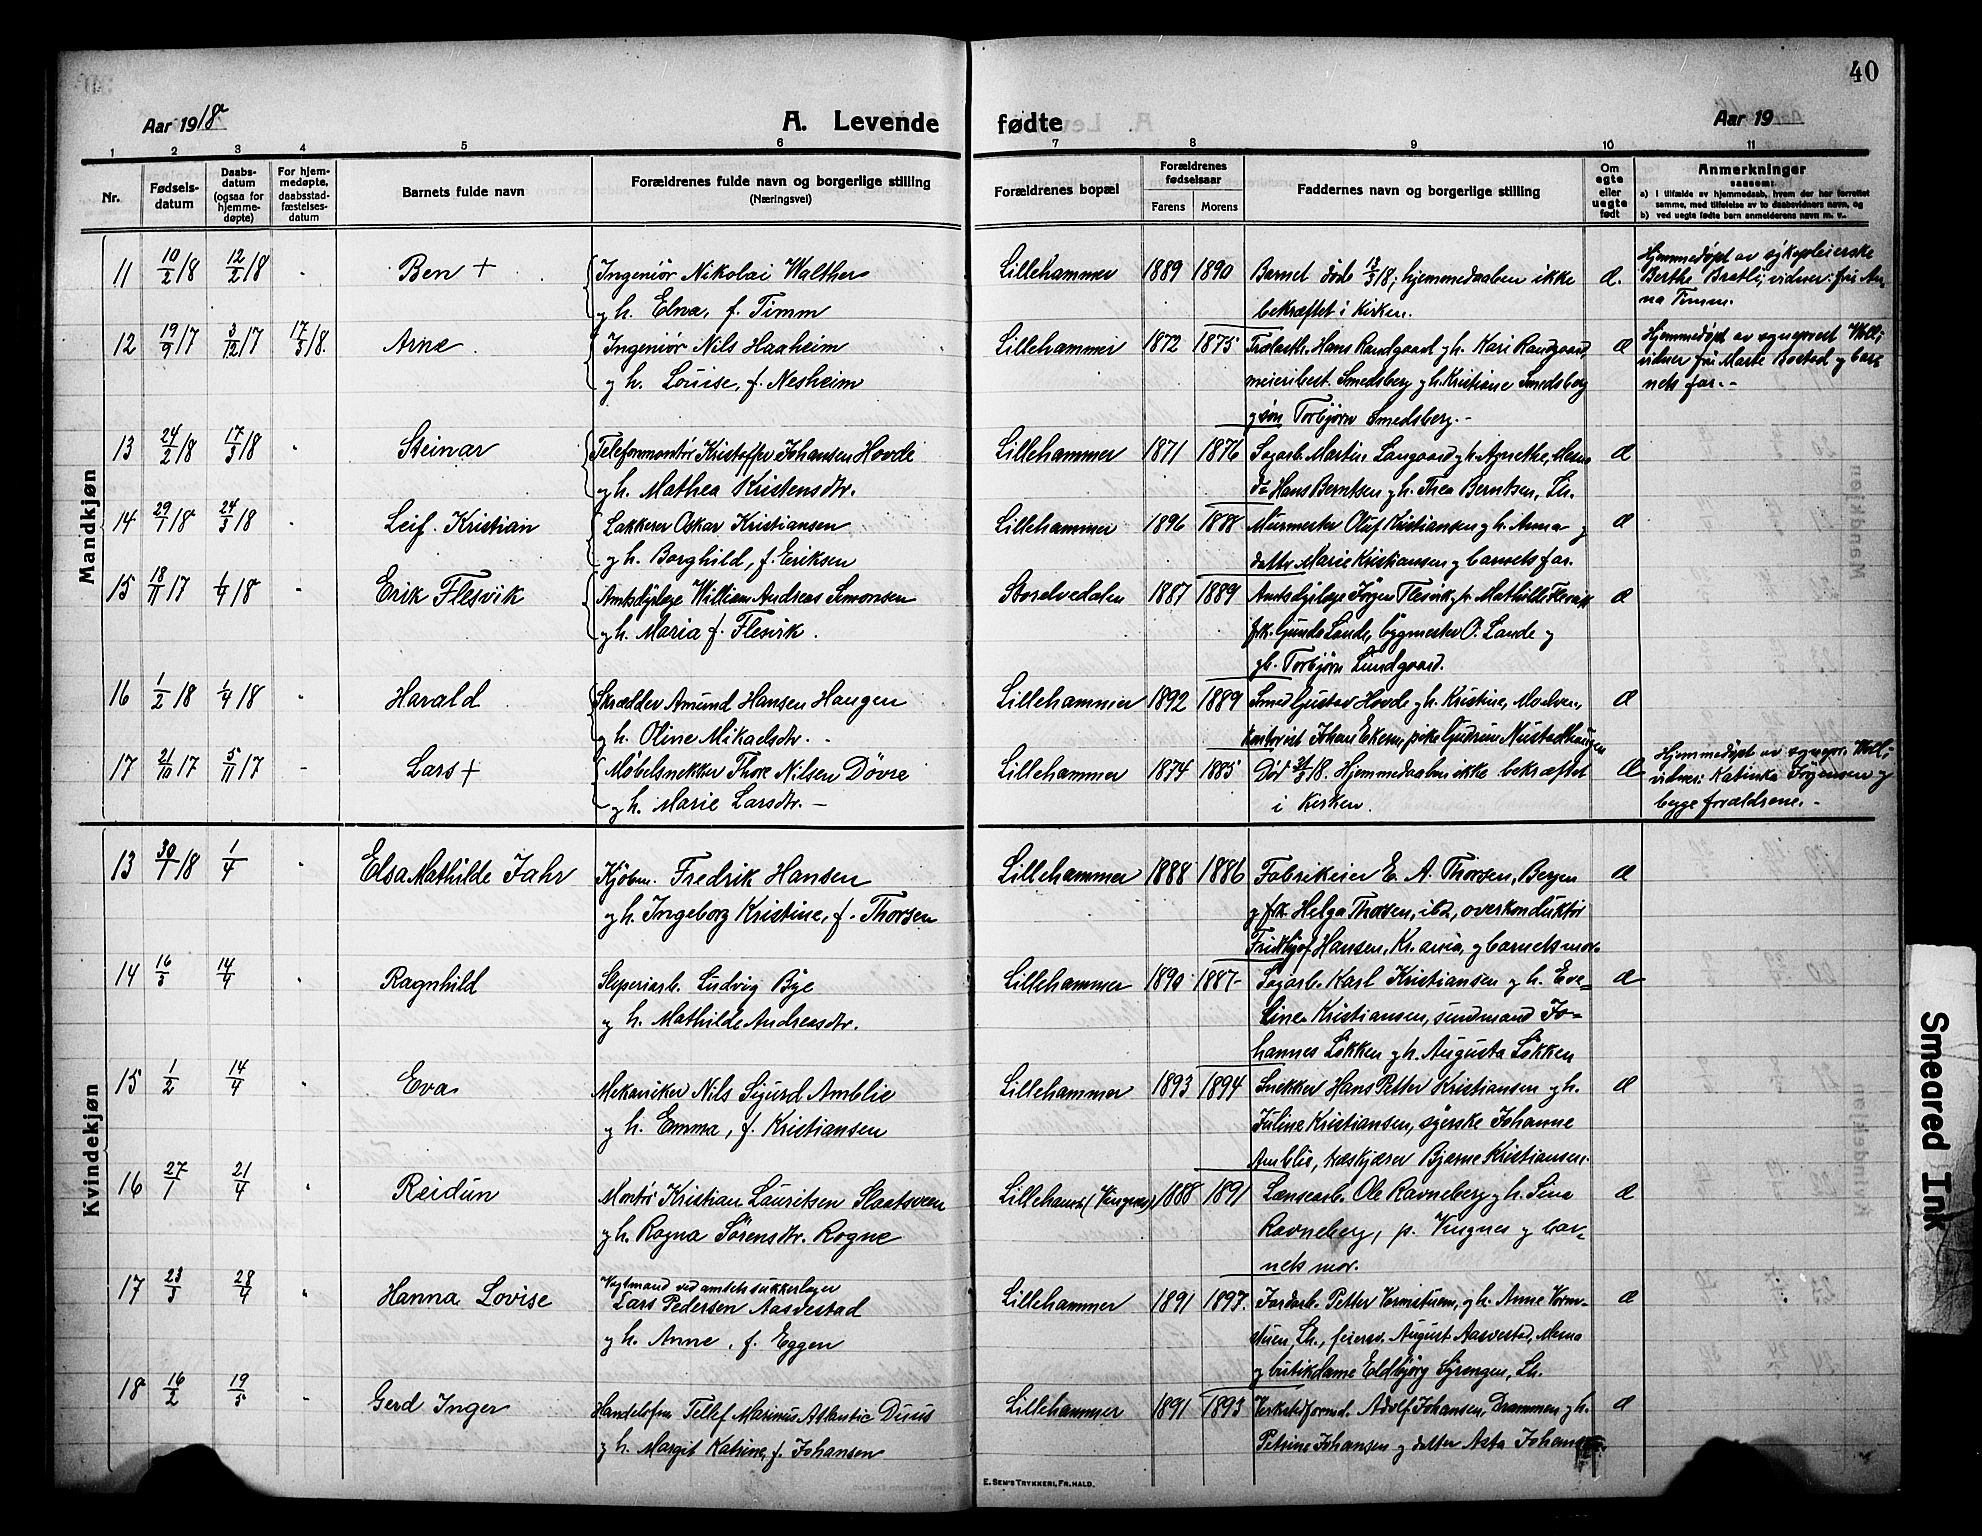 40
Aar 1918
A. Levende fødte
Aar 19
1 2 3 4 5 6 7 8 9 10 11
Nr.
Fødselsdatum
Daabsdatum (ogsaa for hjemmedøpte)
For hjemmedøpte, daabsstadfæstelsesdatum
Barnets fulde navn
Forældrenes fulde navn og borgerlige stilling
(Næringsvei)
Forældrenes bopæl
Forældrenes fødselsaar
Farens Morens
Faddernes navn og borgerlige stilling
Om egte eller uegte født
Anmerkninger
saasom:
a) i tilfælde av hjemmedaab, hvem der har forrettet samme, med tilføielse av to daabsvidners navn, og
b) ved uegte fødte barn anmelderens navn m. v.
Mandkjøn
11 10/2 18 12/2 18 Ben + Ingeniør Nikolai Walther Lillehammer 1889 1890 Barnet døde 13/3 18; hjemmedaaben ikke æ. Hjemmedøpt av sykepleierske
og h. Elna, f. Timm bekræftet i Kirken. Berthe Bratli; vidner: fru Anna Timm.
12 19/9 17 3/12 17 17/3 18. Arne Ingeniør Nils Haaheim Lillehammer 1872 1875 Trælasth. Hans Randgaard og h. Kari Randgaard, æ Hjemmedøpt av sogneprest
og h. Louise, f. Nesheim meieribest. Smedsberg og h. Kristiane Smedsberg vidner fru Marte og barnets far. -
og søn Torbjørn Smedsberg. -
13 24/2 18 17/3 18 Steinar Telefonmontør Kristoffer Johansen Hovde Lillehammer 1871 1876 Sagarb. Martin Langaard og h. Agnethe, Mesna æ
og h. Mathea Kristensdtr. do Hans Berntsen og h. Thea Berntsen, Lh.
14 29/1 18 24/3 18 Leif Kristian Lakkerer Oskar Kristiansen Lillehammer 1896 1888 Murmester Oluf Kristiansen og h. Anna og æ
og h. Borghild, f. Eriksen datter Marie Kristiansen og barnets far.
15 18/11 17 1/4 18 Erik Flesvik Amtsdyrlæge William Andreas Simonsen Storelvedalen 1887 1889 Amtsdyrlæge Jørgen Flesvik og h. Mathilde Flesvik æ
og h. Maria f. Flesvik. frk. Gunda Lande, bygmester O. Lande og
gb. Torbjørn Lundgaard.
16 1/2 18 1/4 18 Harald Skrædder Amund Hansen Haugen Lillehammer 1892 1889 Smed Gustav Hovde og h. Kristine, æ
og h. Oline Mikaelsdtr. Johan Ekern, pike Gudrun Nustadhaugen
17 21/10 17 5/11 17 - Lars + Møbelsnekker Thore Nilsen Dövre Lillehammer 1874 1885 Død 21/3 18. Hjemmedaaben ikke bekræftet æ Hjemmedøpt av sognepr.
og h. Marie Larsdtr. - i Kirken. vidner: Katinka Jørgensen og
begge forældrene. -
Kvindekjøn
13 30/1 18 1/4 Elsa Mathilde Jahr Kjøbm. Fredrik Hansen Lillehammer 1888 1886 Fabrikeier E. A. Thorsen, Bergen æ
og h. Ingeborg Kristine, f. Thorsen og frk. Helga Thorsen, ibd, overkonduktør
Fridthjof Hansen, Kr.ania, og barnets mor.
14 16/3 14/4 Ragnhild Sliperiarb. Ludvig Bye Lillehammer 1890 1887 Sagarb. Karl Kristiansen og h. Eve- æ
og h. Mathilde Andreasdtr. line Kristiansen, sundmand Jo-
hannes Løkken og h. Augusta Løkken
15 1/2 14/4 Eva Mekaniker Nils Sigurd Amblie Lillehammer 1893 1894 Snekker Hans Petter Kristiansen og h. æ
og h. Emma, f. Kristiansen Juline Kristiansen, syerske Johanne
Amblie, træskjærer Bjarne Kristiansen.
16 27/1 21/4 Reidun Montør Kristian Lauritsen Slaatsveen Lilleham. (Vingnes) 1888 1891 Lænsearb. Ole Ravneberg og h. Sina æ
og h. Ragna Sörensdtr. Rogne Ravneberg, p. Vingnes og bar-
nets mor.
17 23/3 28/4 Hanna Lovise Vagtmand ved amtets sukkerlager
Lars Pedersen Aasvestad Lillehammer 1891 1897. Jordarb. Petter Vormstuen, og h. Anne Vorm- æ
og h. Anne, f. Eggen stuen, Lh., feiersv. August Aasvestad, Mesna
og butikdame Eldbjörg Syrengen, Lh.
18 16/2 19/5 Gerd Inger Handelsfm Tellef Marinus Atlantic Duus Lillehammer 1891 1893 Verkstedformd. Adolf Johansen, Drammen og h. æ
og h. Margit Katrine, f. Johansen Petrine Johansen og datter Asta Johansen.
E. SEM'S TRYKKERI, FR.HALD.
Smeared Ink